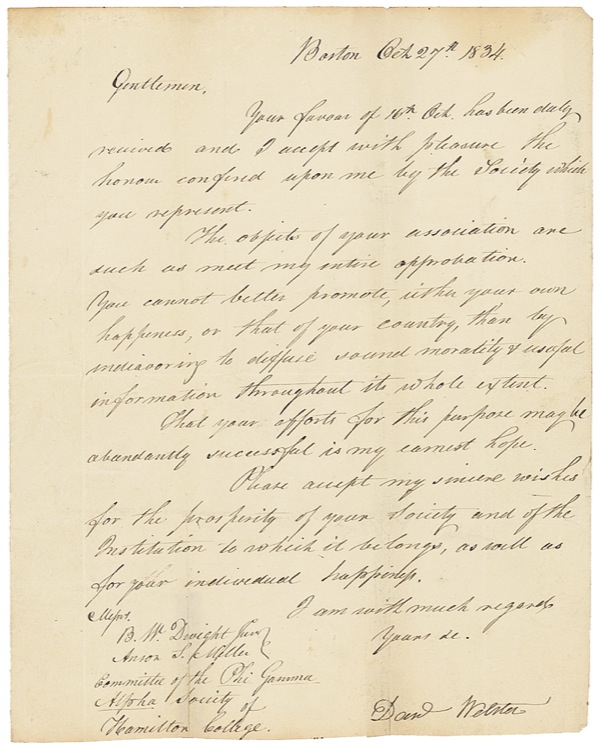 Boston Oct. 27th 1834.
Gentlemen,
Your favour of 16th Oct. has been duly
recived and I accept with pleasure the
honour confered upon me by the Society which
you represent.
The objects of your association are
such as meet my entire approbation.
You cannot better promote, either your own
happiness, or that of your country, than by
indeavoring to diffuse sound morality & useful
information throughout its whole extent.
That your efforts for this purpose may be
abundantly successful is my earnest hope.
Please accept my sincere wishes
for the prosperity of your Society and of the
Institution to which it belongs, as well as
for your individual happiness.
I am with much regard
Yours &c.
Messrs.
B. W. Dwight Junr
Anson S. Miller
Committee of the Phi Gamma
Alpha Society of
Hamilton College.
Danl Webster